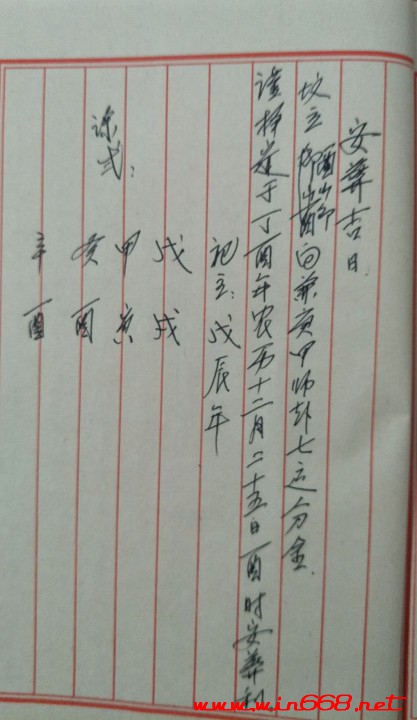 安葬吉日.
坟立酉山卯向兼庚甲师卦七运分金.
谨择遵于丁酉年农历十二月二十五日酉时安葬利
祀主:戊辰年
课式:
戊戌
甲寅
癸酉
辛酉
www.win668.net